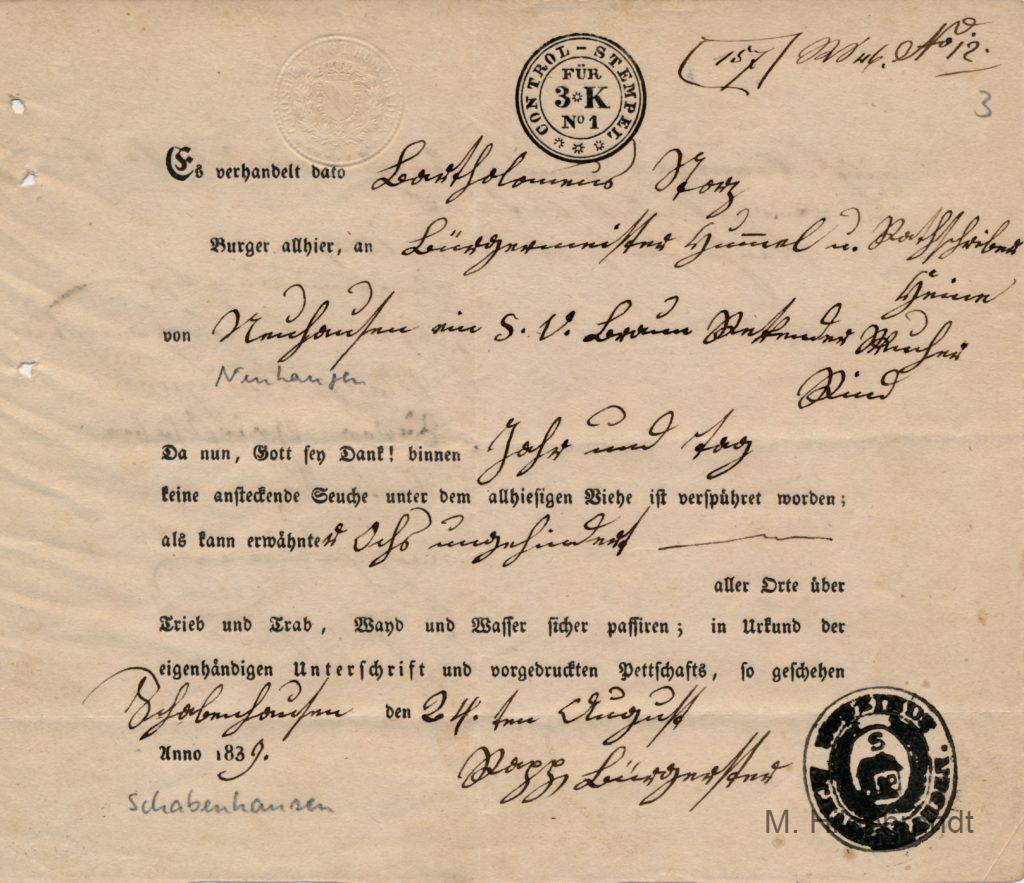 (157)
No 12.
3
CONTROL-STEMPEL
FÜR
3 K
No 1
Es verhandelt dato Bartholomeus Storz
Burger allhier, an Bürgermeister Hummel u. Rathschreiber
Heine
von Neuhausen ein S. V. Braun
Rind
Neuhausen
Da nun, Gott sey Dank! binnen Jahr und tag
keine ansteckende Seuche unter dem allhiesigen Viehe ist verspühret worden;
als kann erwähnter Ochs ungehindert
aller Orte über
Trieb und Trab, Wayd und Wasser sicher passiren; in Urkund der
eigenhändigen Unterschrift und vorgedruckten Pettschafts, so geschehen
Schabenhausen den 24. ten August
Anno 1839.
Rapp Bürgerster
S
Schabenhausen